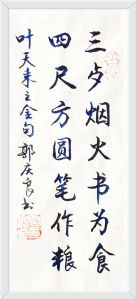 三歺烟火书为食
四尺方圆笔作粮
叶天来之金句 郭庆良书